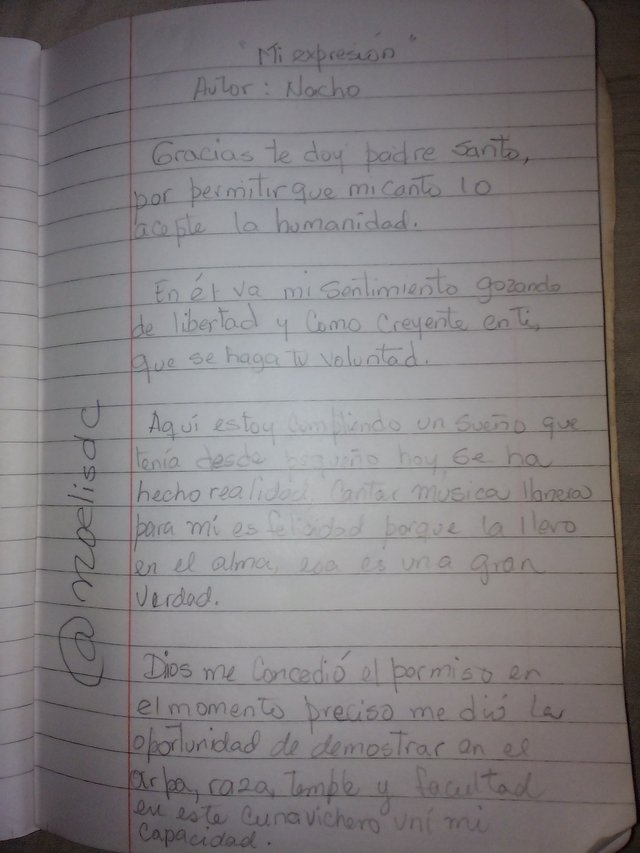 "Mi expresión"
Autor: Nacho
Gracias te doy padre santo,
por permitir que mi canto lo
acepte la humanidad.
En él va mi sentimiento gozando
de libertad y como creyente en ti,
que se haga tu voluntad.
Aquí estoy cumpliendo un sueño que
tenía desde pequeño hoy se ha
hecho realidad. Cantar música llanera
para mí es felicidad porque la llevo
en el alma, esa es una gran
verdad.
Dios me concedió el permiso en
el momento preciso me dió la
oportunidad de demostrar en el
arpa, raza, temple y facultad
en este Cunavichero uní mi
capacidad.
@noelisdc